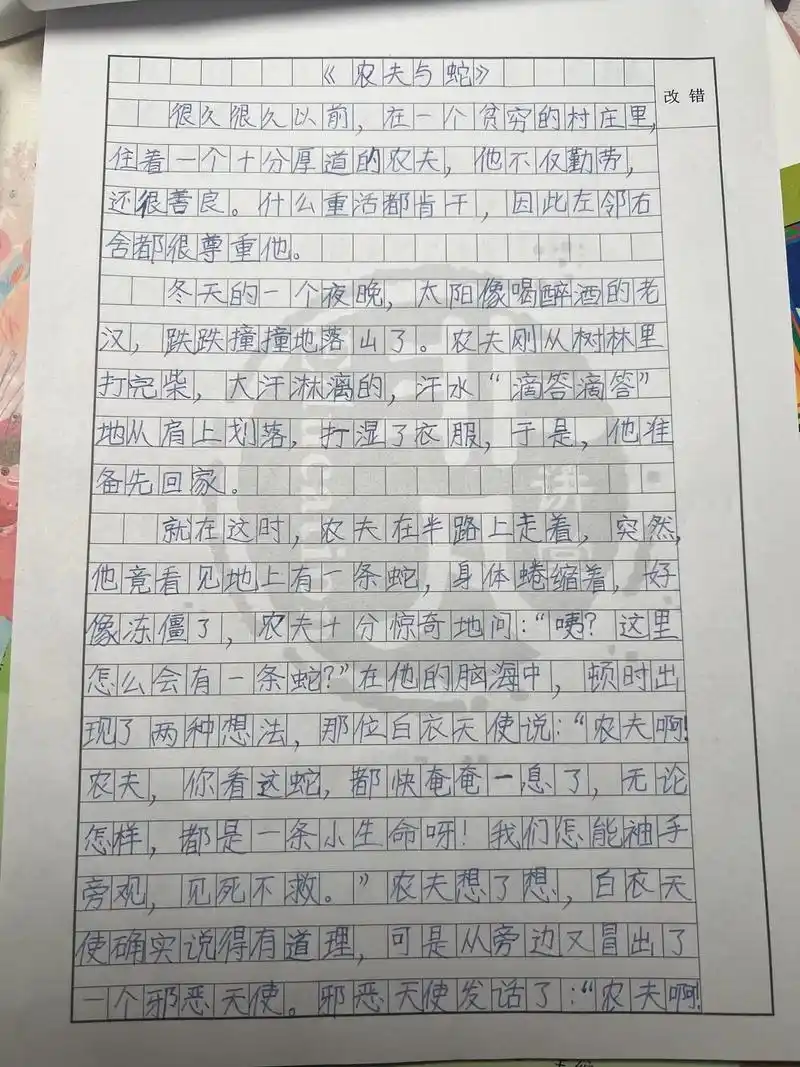 《农夫与蛇》
改错
很久很久以前，在一个贫穷的村庄里，
住着一个十分厚道的农夫，他不仅勤劳，
还很善良。什么重活都肯干，因此左邻右
舍都很尊重他。
冬天的一个夜晚，太阳像喝醉酒的老
汉，跌跌撞撞地落山了。农夫刚从树林里
打完柴，大汗淋漓的，汗水“滴答滴答”
地从肩上划落，打湿了衣服，于是，他准
备先回家。
就在这时，农夫在半路上走着，突然，
他竟看见地上有一条蛇，身体蜷缩着，好
像冻僵了，农夫十分惊奇地问：“咦？这里
怎么会有一条蛇？”在他的脑海中，顿时出
现了两种想法，那位白衣天使说：“农夫啊！
农夫，你看这蛇，都快奄奄一息了，无论
怎样，都是一条小生命呀！我们怎能袖手
旁观，见死不救。”农夫想了想，白衣天
使确实说得有道理，可是从旁边又冒出了
一个邪恶天使。邪恶天使发话了：“农夫啊！